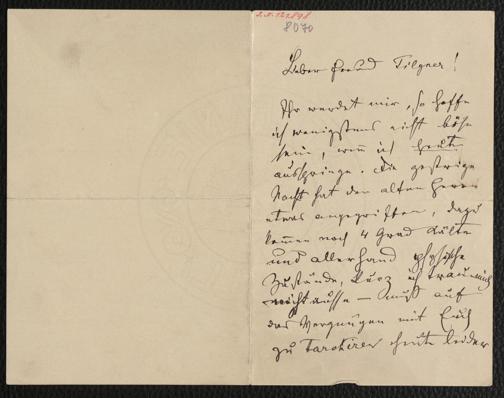 I.N. 121.898
8070
Lieber Freund Tilgner!
Ihr werdet mir, so hoffe
ich wenigstens nicht böse
sein, wenn ich heute
ausspringe. Die gestrige
Nacht hat den alten Herrn
etwas angegriffen, dazu
kommen noch 4 Grad Kälte
und allerhand physische
Zustände, kurz ich trau mich
nicht ausse – muß auf
das Vergnügen mit Euch
zu Tarokiren heute leider